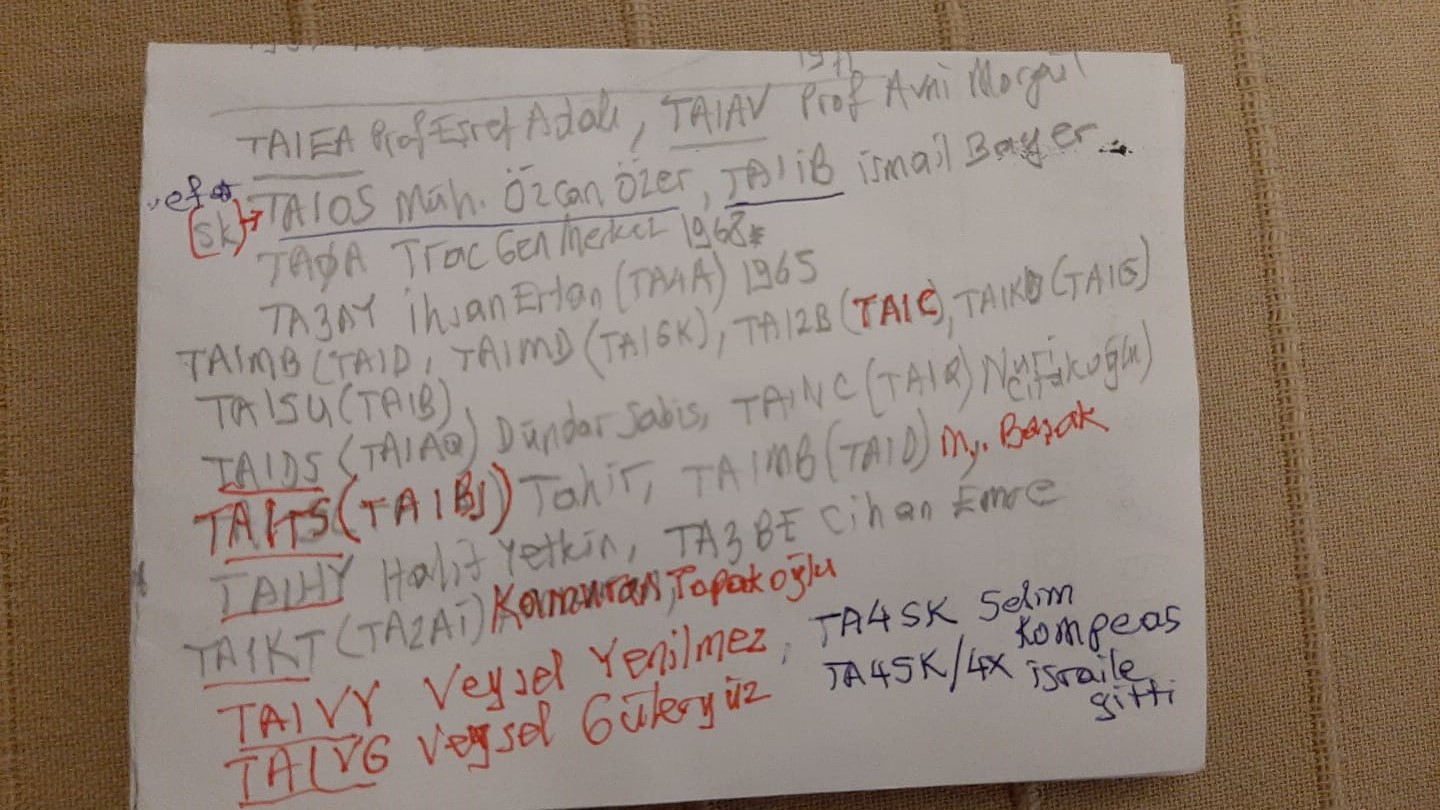 1971
TA1EA Prof Eşref Adalı, TA1AV Prof Avni Morgül
TA1OS Müh. Özcan Özer, TA1İB İsmail Bayer
[SK]→
TAØA Trac Gen Merkez 1968
TA3AY İhsan Ertan (TA4A) 1965
TA1MB (TA1D, TA1MD (TA1SK), TA12B (TA1C), TA1KD (TA1G)
TA1SU (TA1B),
TA1DS (TA1AQ) Dündar Sabis, TA1NC (TA1Q) Nuri Çıtakoğlu)
TA1TS (TA1BJ) Tahir, TA1MB (TA1D) My. Başak
TA1HY Halit Yetkin, TA3BE Cihan Emre
TA1KT (TA2Aİ) Kamuran Tapakoğlu
TA1VY Veysel Yenilmez, TA4SK Selim Kompeas
TA1VG Veysel Güleryüz TA4SK/4X İsraile gitti